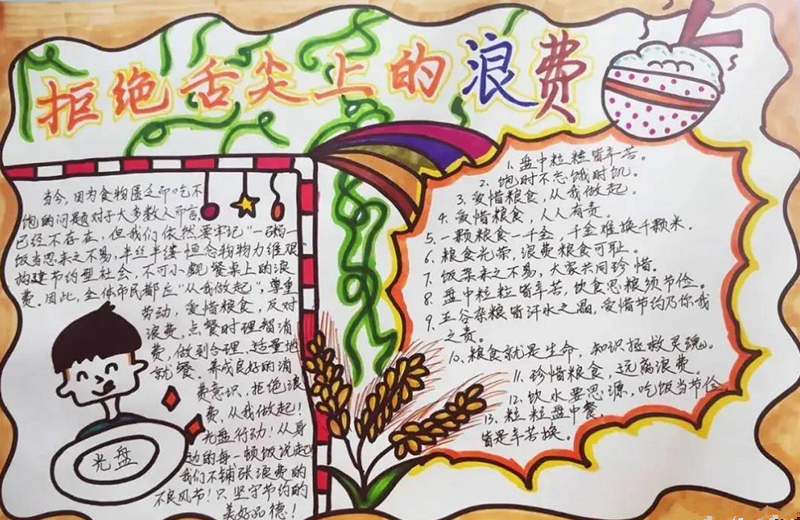 拒绝舌尖上的浪费
当今,因为食物匮乏而吃不
饱的问题对于大多数人而言,
已经不存在,但我们依然要牢记“一粥一
饭当思来之不易,半丝半缕恒念物力维艰
构建节约型社会,不可小觑餐桌上的浪
费。因此,全体市民都应“从我做起”,尊重
劳动,爱惜粮食,反对
浪费,点餐时理智消
费,做到合理、适量地
就餐,养成良好的消
费意识,拒绝浪
费,从我做起!
光盘行动!从身
边的每一顿饭说起
我们不铺张浪费的
不良风节!只坚守节约的
美好品德!
光盘
1. 盘中粒粒皆辛苦。
2. 饱时不忘饿时饥。
3. 爱惜粮食,从我做起。
4. 爱惜粮食,人人有责。
5. 一颗粮食一千金,千金难换千颗米。
6. 粮食光荣,浪费粮食可耻。
7. 饭菜来之不易,大家共同珍惜。
8. 盘中粒粒皆辛苦,饮食思粮须节俭。
9. 五谷杂粮皆汗水之晶,爱惜节约乃你我
之责。
10. 粮食就是生命,知识拯救灵魂。
11. 珍惜粮食,远离浪费。
12. 饮水要思源,吃饭当节俭
13. 粒粒盘中餐,
皆是辛苦换。